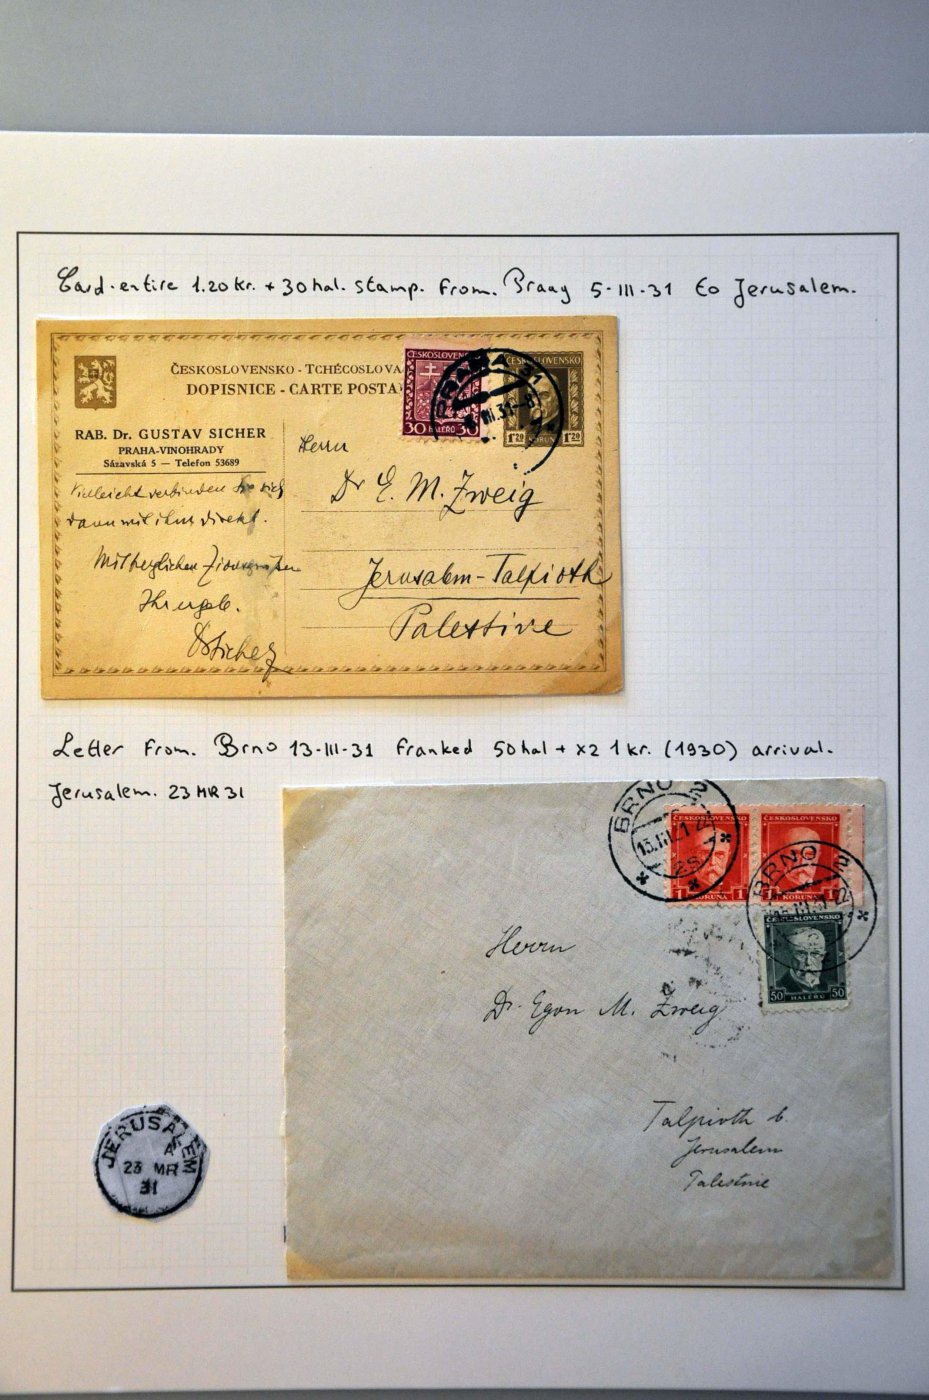 Card-entire 1.20 kr. + 30 hal. stamp. From. Praag 5-III-31 to Jerusalem.
ČESKOSLOVENSKO - TCHÉCOSLOVA
DOPISNICE - CARTE POSTA
ČESKOSLOVENSKO
30 HALÉŘŮ 30
ČESKOSLOVENSKO
1'20 KORUNY 1'20
PRAHA 31
III.31-8
RAB. Dr. GUSTAV SICHER
PRAHA-VINOHRADY
Sázavská 5 — Telefon 53689
Vielleicht verbinden Sie sich
dann mit ihm direkt.
Mit herzlichen Zionsgrüßen
Ihr ergeb.
Sicher
Herrn
Dr E. M. Zweig
Jerusalem-Talpioth
Palestine
Letter From. Brno 13-III-31 franked 50 hal + x2 1 kr. (1930) arrival.
Jerusalem. 23 MR 31
BRNO 2
ČESKOSLOVENSKO
1 KORUNA 1
ČESKOSLOVENSKO
1 KORUNA 1
BRNO 2
ČESKOSLOVENSKO
50 HALÉŘŮ 50
Herrn
Dr. Egon M. Zweig
Talpioth b.
Jerusalem
Palestine
JERUSALEM
A
23 MR
31